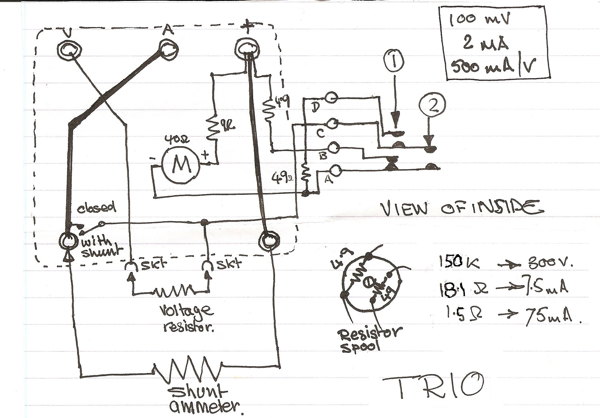 V A +
100 mV
2 MA
500 mA/V
1
2
4.9
D
C
B
A
40Ω
- M +
49Ω
closed
with shunt
skt skt
Voltage
resistor.
Shunt
ammeter.
VIEW OF INSIDE
4.9
49
Resistor
Spool
150K → 300V.
18.1 Ω → 7.5mA
1.5Ω → 75mA.
TRIO